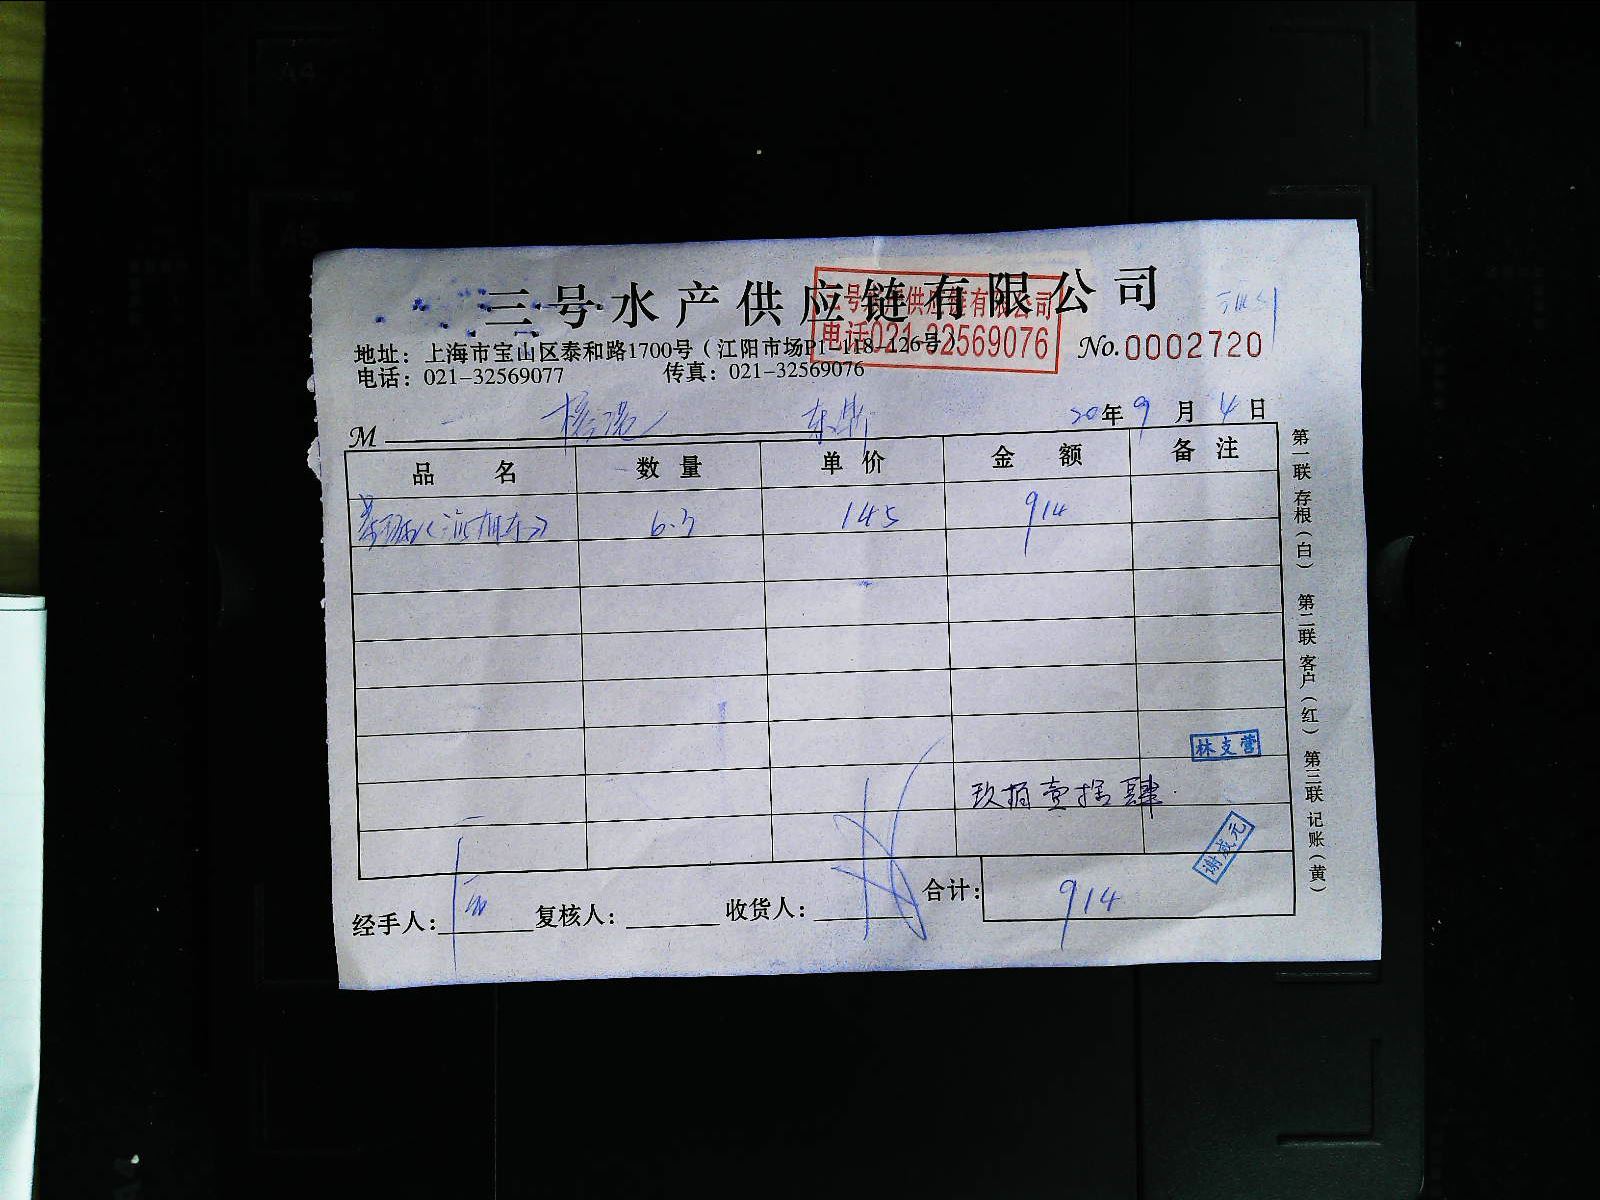 三号水产供应链有限公司
号水产供应链有限公司
电话021-32569076
地址：上海市宝山区泰和路1700号（江阳市场P1-118-126号）
No.0002720
电话：021-32569077 传真：021-32569076
M 20年9月4日
品名 数量 单价 金额 备注
6.3 145 914
林支营
玖佰壹拾肆
谢威元
经手人： 复核人： 收货人： 合计：914
第一联 存根（白） 第二联 客户（红） 第三联 记账（黄）
A4
A5